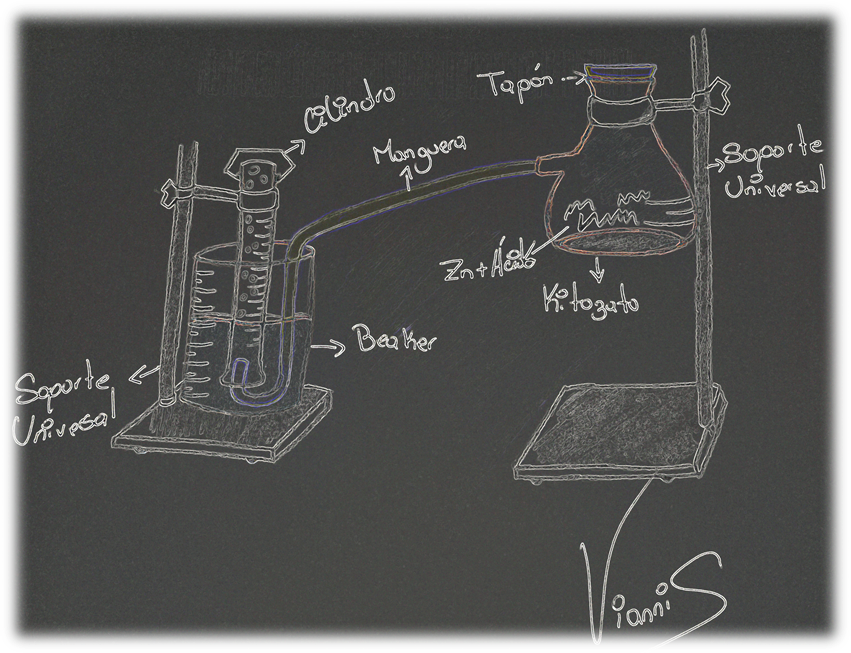 Cilindro
Manguera
Tapón
Soporte
Universal
Zn+Ácido
Kitozato
Beaker
Soporte
Universal
VianniS